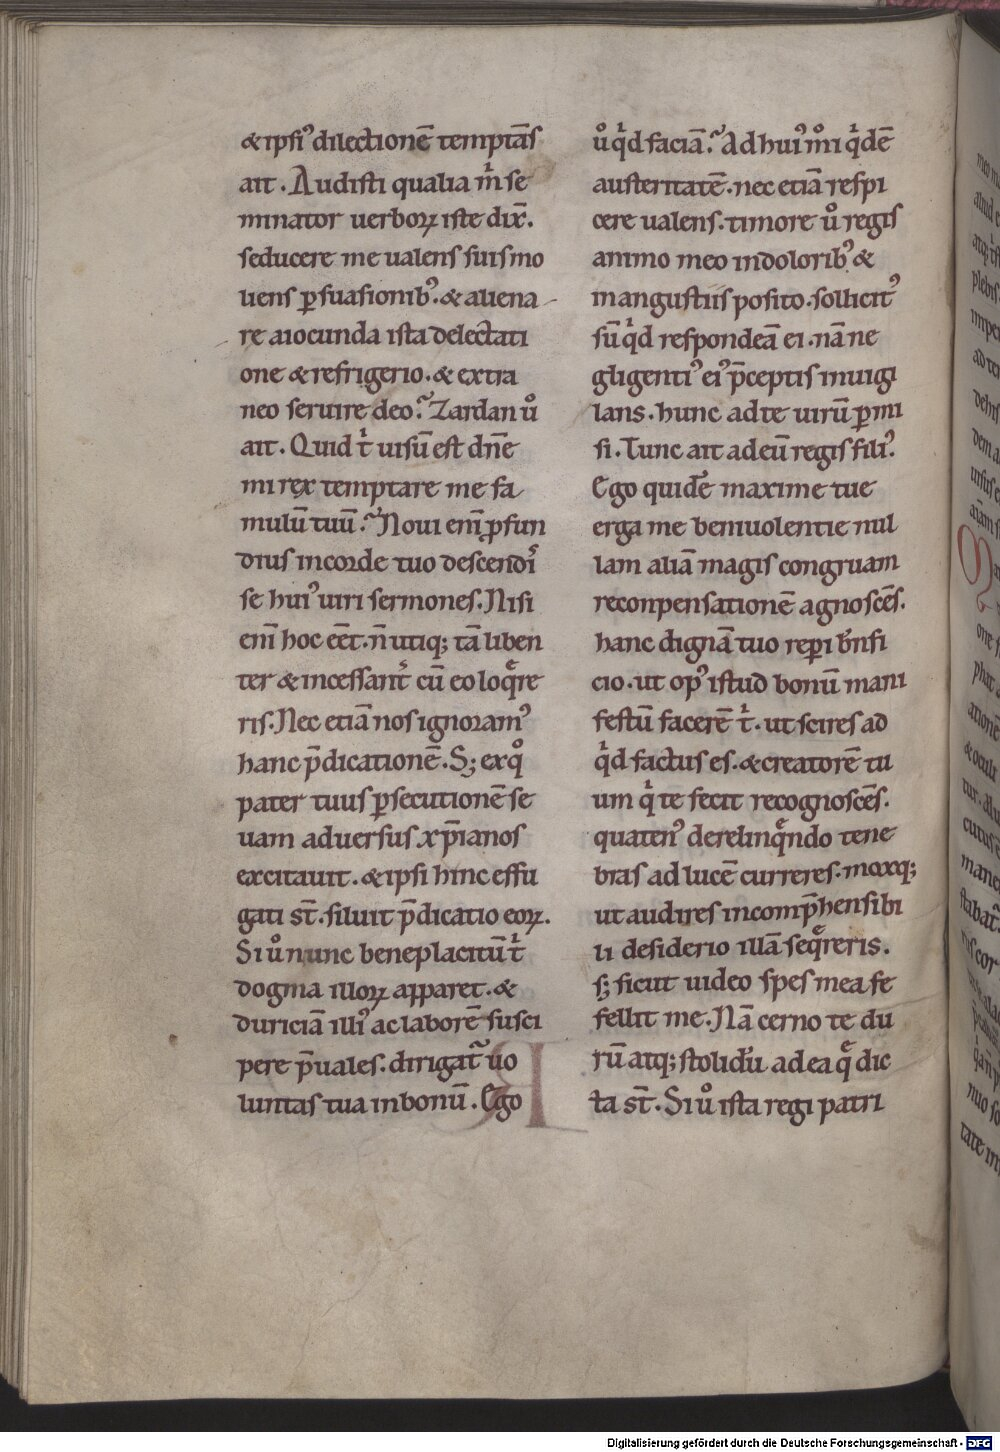 &ipsi᾽ dilectionē temptās
ait. Audisti qualia m̄ se
minator uerboꝝ iste dix̄.
seducere me ualens suis mo
uens ꝑsuasionib᾽. & aliena
re a iocunda ista delectati
one & refrigerio. & extra
neo seruire deo? Zardan uͦ
ait. Quid t̄ uisū est dn̄e
mi rex temptare me fa
mulū tuū? Noui enī ꝓfun
dius in corde tuo descendi
se hui᾽ uiri sermones. Nisi
enī hoc eēt. n̄ utiq; tā liben
ter & incessant̄ cū eo loqͣre
ris. Nec etiā nos ignoram᾽
hanc p̄dicationē. S; ex qͦ
pater tuus ꝑsecutionē se
uam aduersus xp̄ianos
excitauit. & ipsi hinc effu
gati st̄. siluit p̄dicatio eoꝝ.
Si uͦ nunc beneplacitū t̄
dogma illoꝝ apparet. &
duriciā illi᾽ ac laborē susci
pere p̄uales. dirigat̄ uo
luntas tua in bonū. Ego
uͦ qͥd faciā? Ad hui᾽ mͦi qͥdē
austeritatē. nec etiā respi
cere ualens. timore uͦ regis
animo meo in dolorib᾽ &
in angustiis posito. sollicit᾽
sū qͥd respondeā ei. nā ne
gligenti᾽ ei᾽ p̄ceptis inuigi
lans. hunc ad te uirū ꝑmi
si. Tunc ait ad eū regis fili᾽.
Ego quidē maxime tue
erga me beniuolentie nul
lam aliā magis congruam
reconpensationē agnoscēs.
hanc dignā tuo reperi bn̄fi
cio. ut op᾽ istud bonū mani
festū facerē t̄. ut scires ad
qͥd factus es. & creatorē tu
um qͥ te fecit recognoscēs.
quaten᾽ derelinqͣndo tene
bras ad lucē curreres. moxq;
ut audires incomp̄hensibi
li desiderio illā seqͣreris.
s; sicut uideo spes mea fe
fellit me. Nā cerno te du
rū atq; stolidū ad ea qͣ dic
ta st̄. Si uͦ ista regi patri
Digitalisierung gefördert durch die Deutsche Forschungsgemeinschaft - DFG